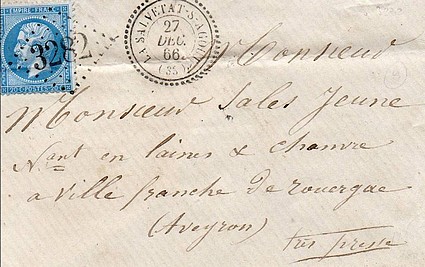 EMPIRE FRANC
3282
20 C POSTES 20 C
LA SALVETAT-S-AGOUT
27
DEC.
66
(33)
Monsieur
Monsieur Sales Jeune
Nant en laines & chanvre
a Ville franche De rouergue
(Aveyron)
très pressé